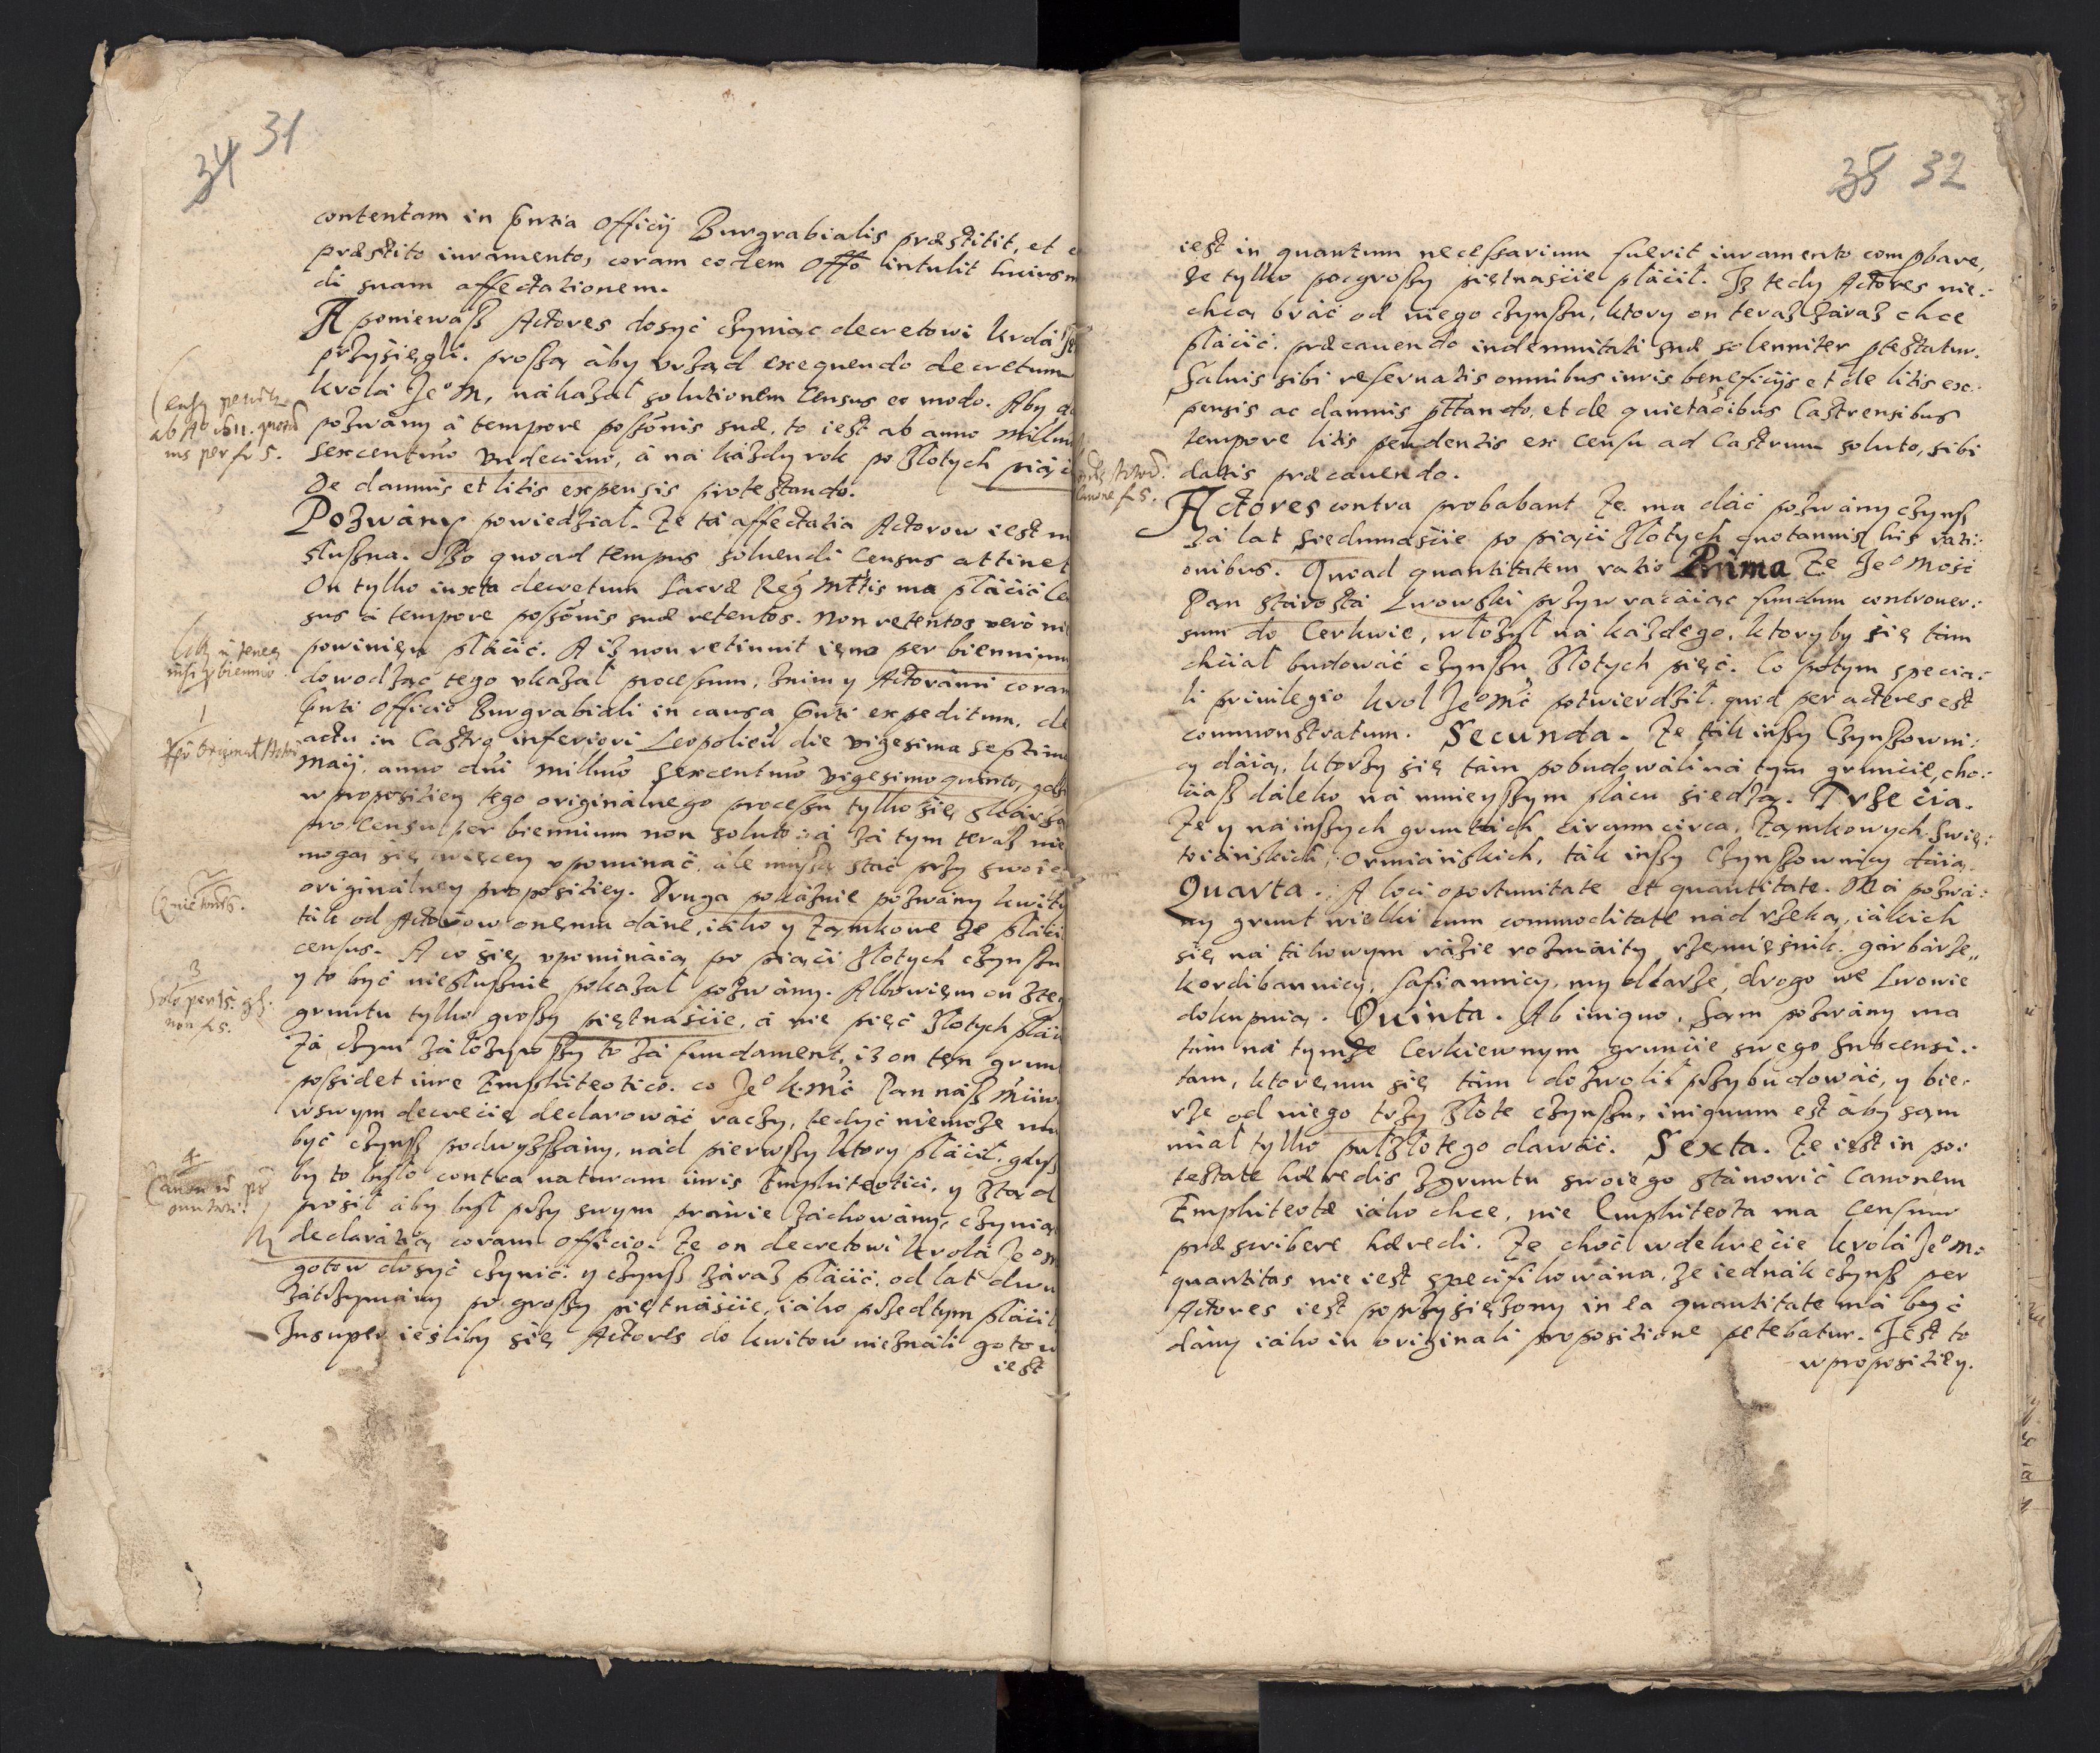 34 31
contentam in Officij Burgrabialis præstitit, et
præstito iuramento, coram eodem Offo intulit
di suam affectationem.
A ponieważ Actores dosyć czyniąc decretowi krolá
przyśięgli. proszą áby vrząd exequendo decretum
krolá Jeo M, nákazał solutionem Census eo modo. Aby
pozwány á tempore possonis suæ. to iest ab anno
sexcentmo vndecimo, á ná káżdy rok po złotych
De damnis et litis expensis protestando.
Pozwány powiedział. Że tá affectatia Actorow iest
słuszna. Bo quoad tempus soluendi Census attinet
On tylko iuxta decretum Sacræ Reg Mttis ma płáćić
sus á tempore possonis suæ retentos. Non retentos vero
powinien płáćić. A iż non retinuit ieno per biennium
dowodząc tego vkazał processum, znim y Actorámi
Officio Burgrabiali in causa expeditum, de
actu in Castro inferiori Leopolien die vigesima septima
Maij. anno dni millmo sexcentmo vigesimo quinto,
w propositiey tego originálnego processu tylko się skárżą
pro Censu per biennium non soluto: á zá tym teraz nie
mogą się więcey vpomináć, ále muszą stać przy
originálney propositiey. Druga pokáźnie pozwány kwity
ták od Actorow onemu dáne, iáko y Zamkowe że
census. A co się vpomináią po piąći złotych czynszu
y to być niesłusznie pokazał pozwány. Albowiem on
gruntu tylko groszy piętnaśćie, á nie pięć złotych
Zá czym záłożywszy to zá fundament, iż on ten
possidet iure Emphiteotico. co Jeo K. Mć Pan nász
w swym decrećie declarowáć raczy, tedyć niemoże mu
być czynsz podwyższány. nád pierwszy ktory płáćił. gdyż
by to było contra naturam iuris Emphiteotici, y
prosił áby był przy swym práwie záchowány, czyniąc
declarátią coram officio. Że on decretowi krolá Jeo
gotow dosyć czynić. y czynsz záraz płáćić, od lat dwu
zátrzymány po groszy piętnáśćie, iáko przedtym płáćił
Insuper ieśliby się Actores do kwitow nieználi gotow
iest
ab Ao 1611. quotan
per fl 5.
1
2
3
Solo per 15 gs.
non fl 5.
4
35 32
iest in quantum necessarium fuerit iuramento compbare,
że tylko po groszy piętnaśćie płáćił. Iż tedy Actores nie:
chcą bráć od niego czynszu, ktory on teraz záraz chce
płáćić. præcauendo indemnitati suæ solenniter ptestatur.
Saluis sibi reseruatis omnibus iuris beneficijs et de litis ex:
pensis ac damnis pttando, et de quietacibus Castrensibus
tempore litis pendentis ex Censu ad Castrum soluto, sibi
datis præcauendo.
Actores contra probabant Że ma dáć pozwány czynsz
Zá lat siedmnaśćie po piąći złotych quotannis his rati:
onibus. Quoad quantitatem ratio Prima Że Jeo Mość
Pan Stárostá Lwowski przywracáiąc fundum controuer:
sum do Cerkwie, włożył ná káżdego, ktoryby się tám
chćiał budowáć czynszu złotych pięć. Co potym specia:
li priuilegio krol Jeo Mć potwierdźił. quod per actores est
commonstratum. Secunda. Że ták inszy Czynszowni:
cy dáią, ktorzy się tám pobudowáli ná tym grunćie, cho:
ćiasz dáleko ná mnieyszym plácu śiedzą. Trzećia.
Że y ná inszych gruntách circum circa, Zamkowych, Swię:
toiáńskich, Ormiáńskich, ták inszy Czynszownicy dáią.
Quarta. A loci oportunitate et quantitate. Má pozwá:
ny grunt wielki cum commoditate nád rzeką, iákich
się ná tákowym ráźie rozmáity rzemięśnik. gárbárze,,
kordibannicy, safiannicy, mydlarze, drogo we Lwowie
dokupuią. Quinta. Ab iniquo. Sam pozwány ma
tám ná tymże Cerkiewnym grunćie swego Subcensi:
tam, ktoremu się tám dozwolił przybudowáć, y bie:
rze od niego trzy złote czynszu, iniquum est áby sam
miał tylko pułzłotego dawáć. Sexta. Że iest in po:
testate hæredis z gruntu swoiego stánowić Canonem
Emphiteotæ iáko chce, nie Emphiteota ma Censum
præscribere hæredi. Że choć w dekrećie krolá Jeo M:
quantitas nie iest specifikowána, że iednák czynsz per
Actores iest poprzyśiężony in ea quantitate má być
dány iáko in originali propositione petebatur. Jest to
w propositiey.